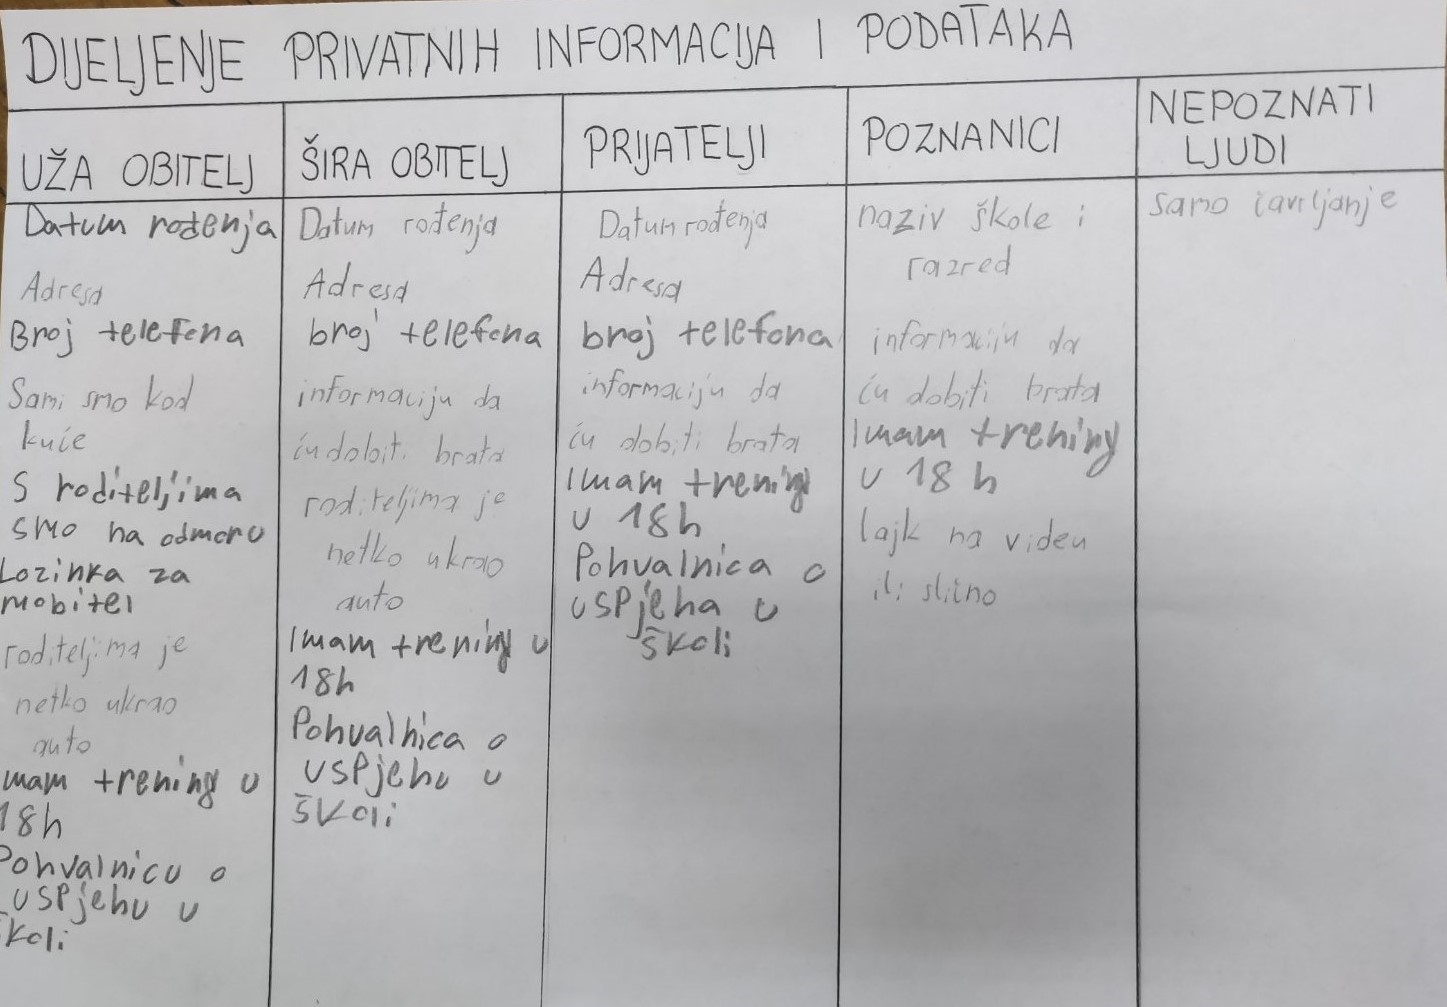 DIJELJENJE PRIVATNIH INFORMACIJA I PODATAKA
UŽA OBITELJ
Datum rođenja
Adresa
Broj telefona
Sami smo kod
kuće
S roditeljima
smo na odmoru
Lozinka za
mobitel
roditeljima je
netko ukrao
auto
mam trening u
18h
Pohvalnicu o
uspjehu u
školi
ŠIRA OBITELJ
Datum rođenja
Adresa
broj telefona
informaciju da
ću dobiti brata
roditeljima je
netko ukrao
auto
Imam trening u
18h
Pohvalnica o
uspjehu u
školi
PRIJATELJI
Datum rođenja
Adresa
broj telefona
informaciju da
ću dobiti brata
Imam trening
u 18h
Pohvalnica o
uspjeha u
školi
POZNANICI
naziv škole i
razred
informaciju da
ću dobiti brata
Imam trening
u 18 h
lajk na videu
ili slično
NEPOZNATI
LJUDI
samo čavrljanje